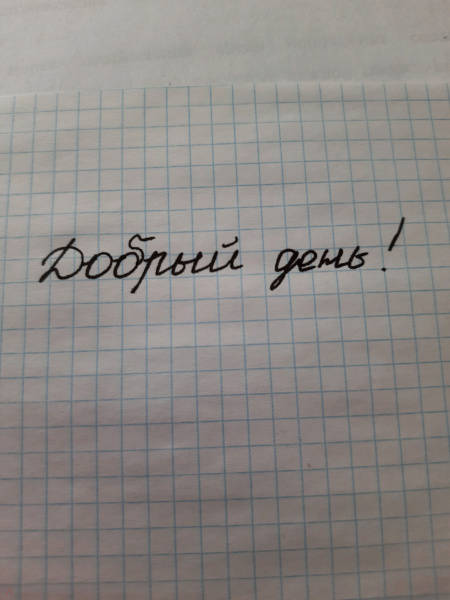 Добрый день!